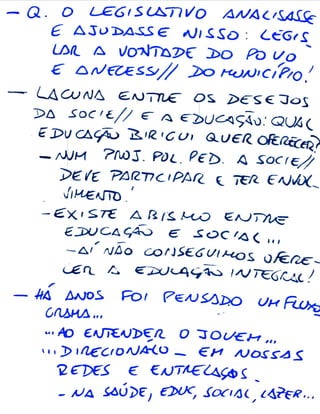 - Q. O LEGISLATIVO ANALISASSE
E AJUDASSE NISSO: LEGIS
LAR A VONTADE DO POVO
E A NECESSI// DO MUNICÍPIO!
- LACUNA ENTRE OS DESEJOS
DA SOCIE// E A EDUCAÇÃO: QUAL
EDUCAÇÃO BIRIGUI QUER OFERECER?
- NUM PROJ. POL. PED. A SOCIE//
DEVE PARTICIPAR E TER ENVOL-
VIMENTO!
- EXISTE ABISMO ENTRE
EDUCAÇÃO E SOCIAL ...
- AÍ NÃO CONSEGUIMOS OFERE-
CER A EDUCAÇÃO INTEGRAL!
- HÁ ANOS FOI PENSADO UM FLUXO
GRAMA...
... AO ENTENDER O JOVEM...
... DIRECIONÁ-LO - EM NOSSAS
REDES E ENTRELAÇOS.
- NA SAÚDE, EDUC, SOCIAL, LAZER...